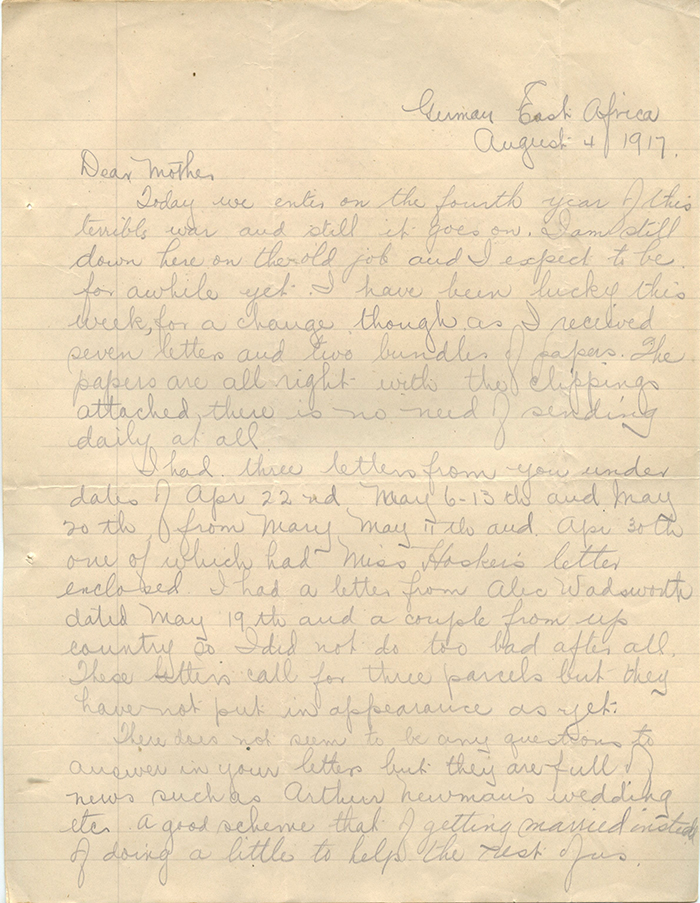 German East Africa
August 4 1917.
Dear Mother
Today we enter on the fourth year of this
terrible war and still it goes on. I am still
down here on the old job and I expect to be
for awhile yet. I have been lucky this
week, for a change though as I received
seven letters and two bundles of papers. The
papers are all right with the clippings
attached, there is no need of sending
daily at all
I had three letters from you under
dates of Apr 22nd May 6-13th and May
20th, from Mary May 11th and Apr 30th
one of which had Miss Hosker's letter
enclosed. I had a letter from Alec Wadsworth
dated May 19th and a couple from up
country so I did not do too bad after all.
These letters call for three parcels but they
have not put in appearance as yet.
There does not seem to be any questions to
answer in your letters but they are full of
news such as Arthur Newman's wedding
etc. A good scheme that of getting married instead
of doing a little to help the rest of us.